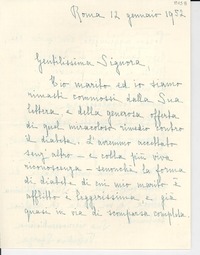 Roma 12 gennaio 1952
Gentilissima Signora,
Mio marito ed io siamo
rimasti commossi dalla Sua
lettera e della generosa offerta
di quel miracoloso rimedio contro
il diabete. L'avremmo accettato
senz'altro - e colla più viva
riconoscenza - senonché la forma
di diabete di cui mio marito è
afflitto è leggerissima e già
quasi in via di scomparsa completa.